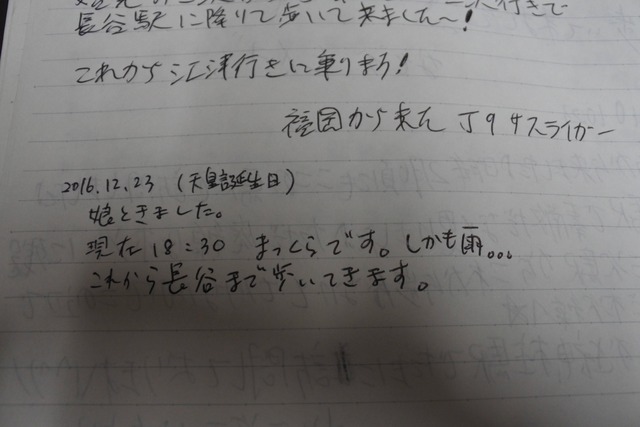 行きで
長谷駅に降りて歩いて来ました〜!
これから江津行きに乗りまう!
福岡から来た J94スライガー
2016.12.23 (天皇誕生日)
娘ときました。
現在18:30 まっくらです。しかも雨。。。
これから長谷まで歩いてきます。